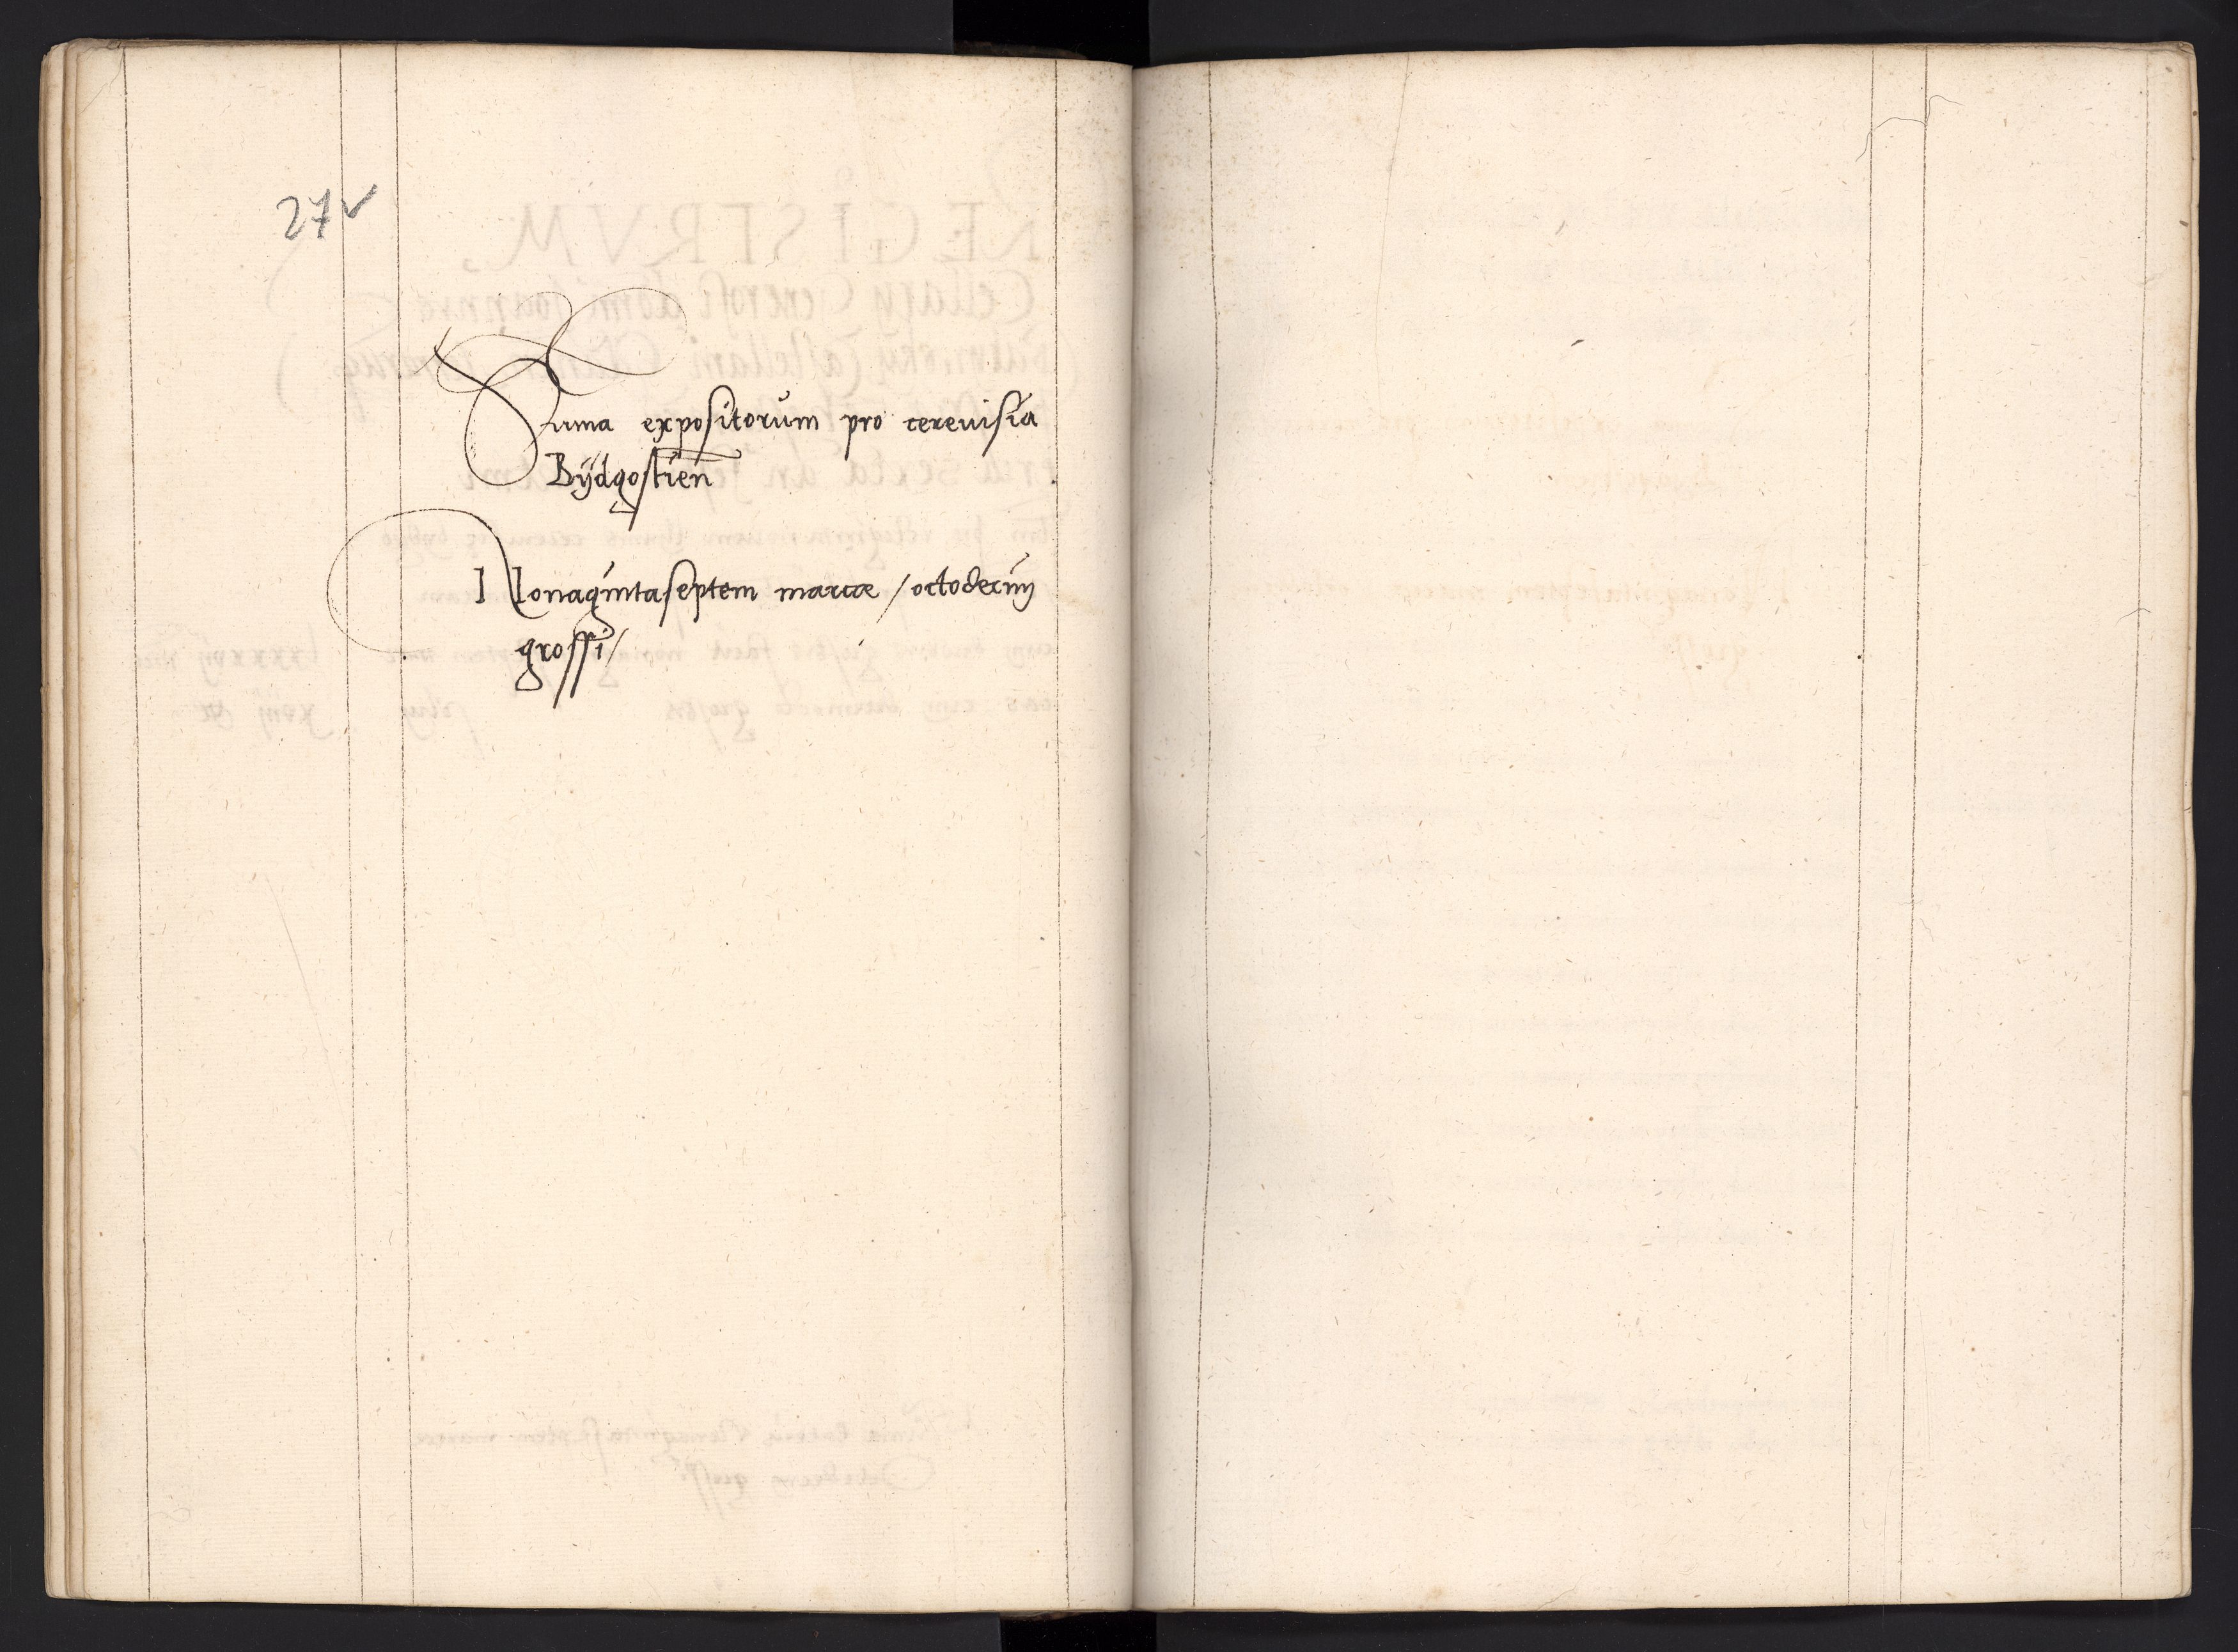 27v
Suma expositorum pro cerevisia
Bÿdgostien̄
Nonagintaseptem marcæ / octodecim
grossi /